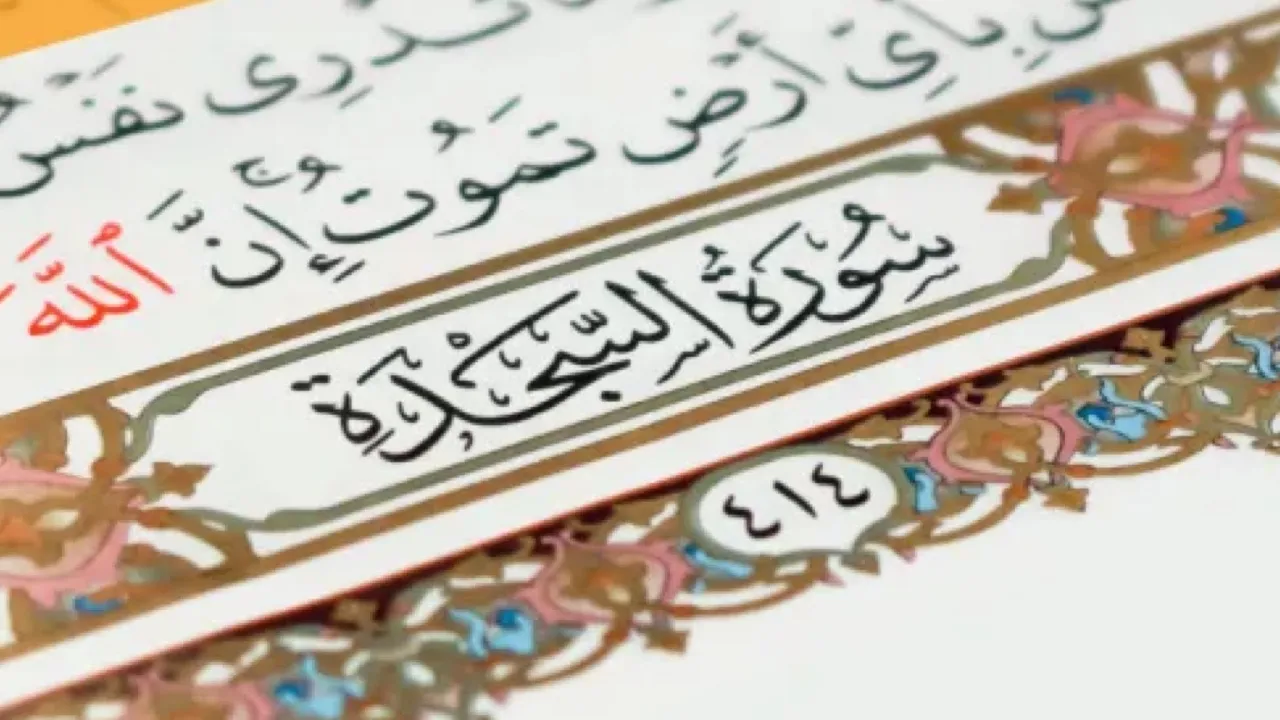 تَدْرِى نَفْسٌ
بِأَىِّ أَرْضٍ تَمُوتُ إِنَّ ٱللَّهَ
سُورَةُ السَّجْدَةِ
٤١٤